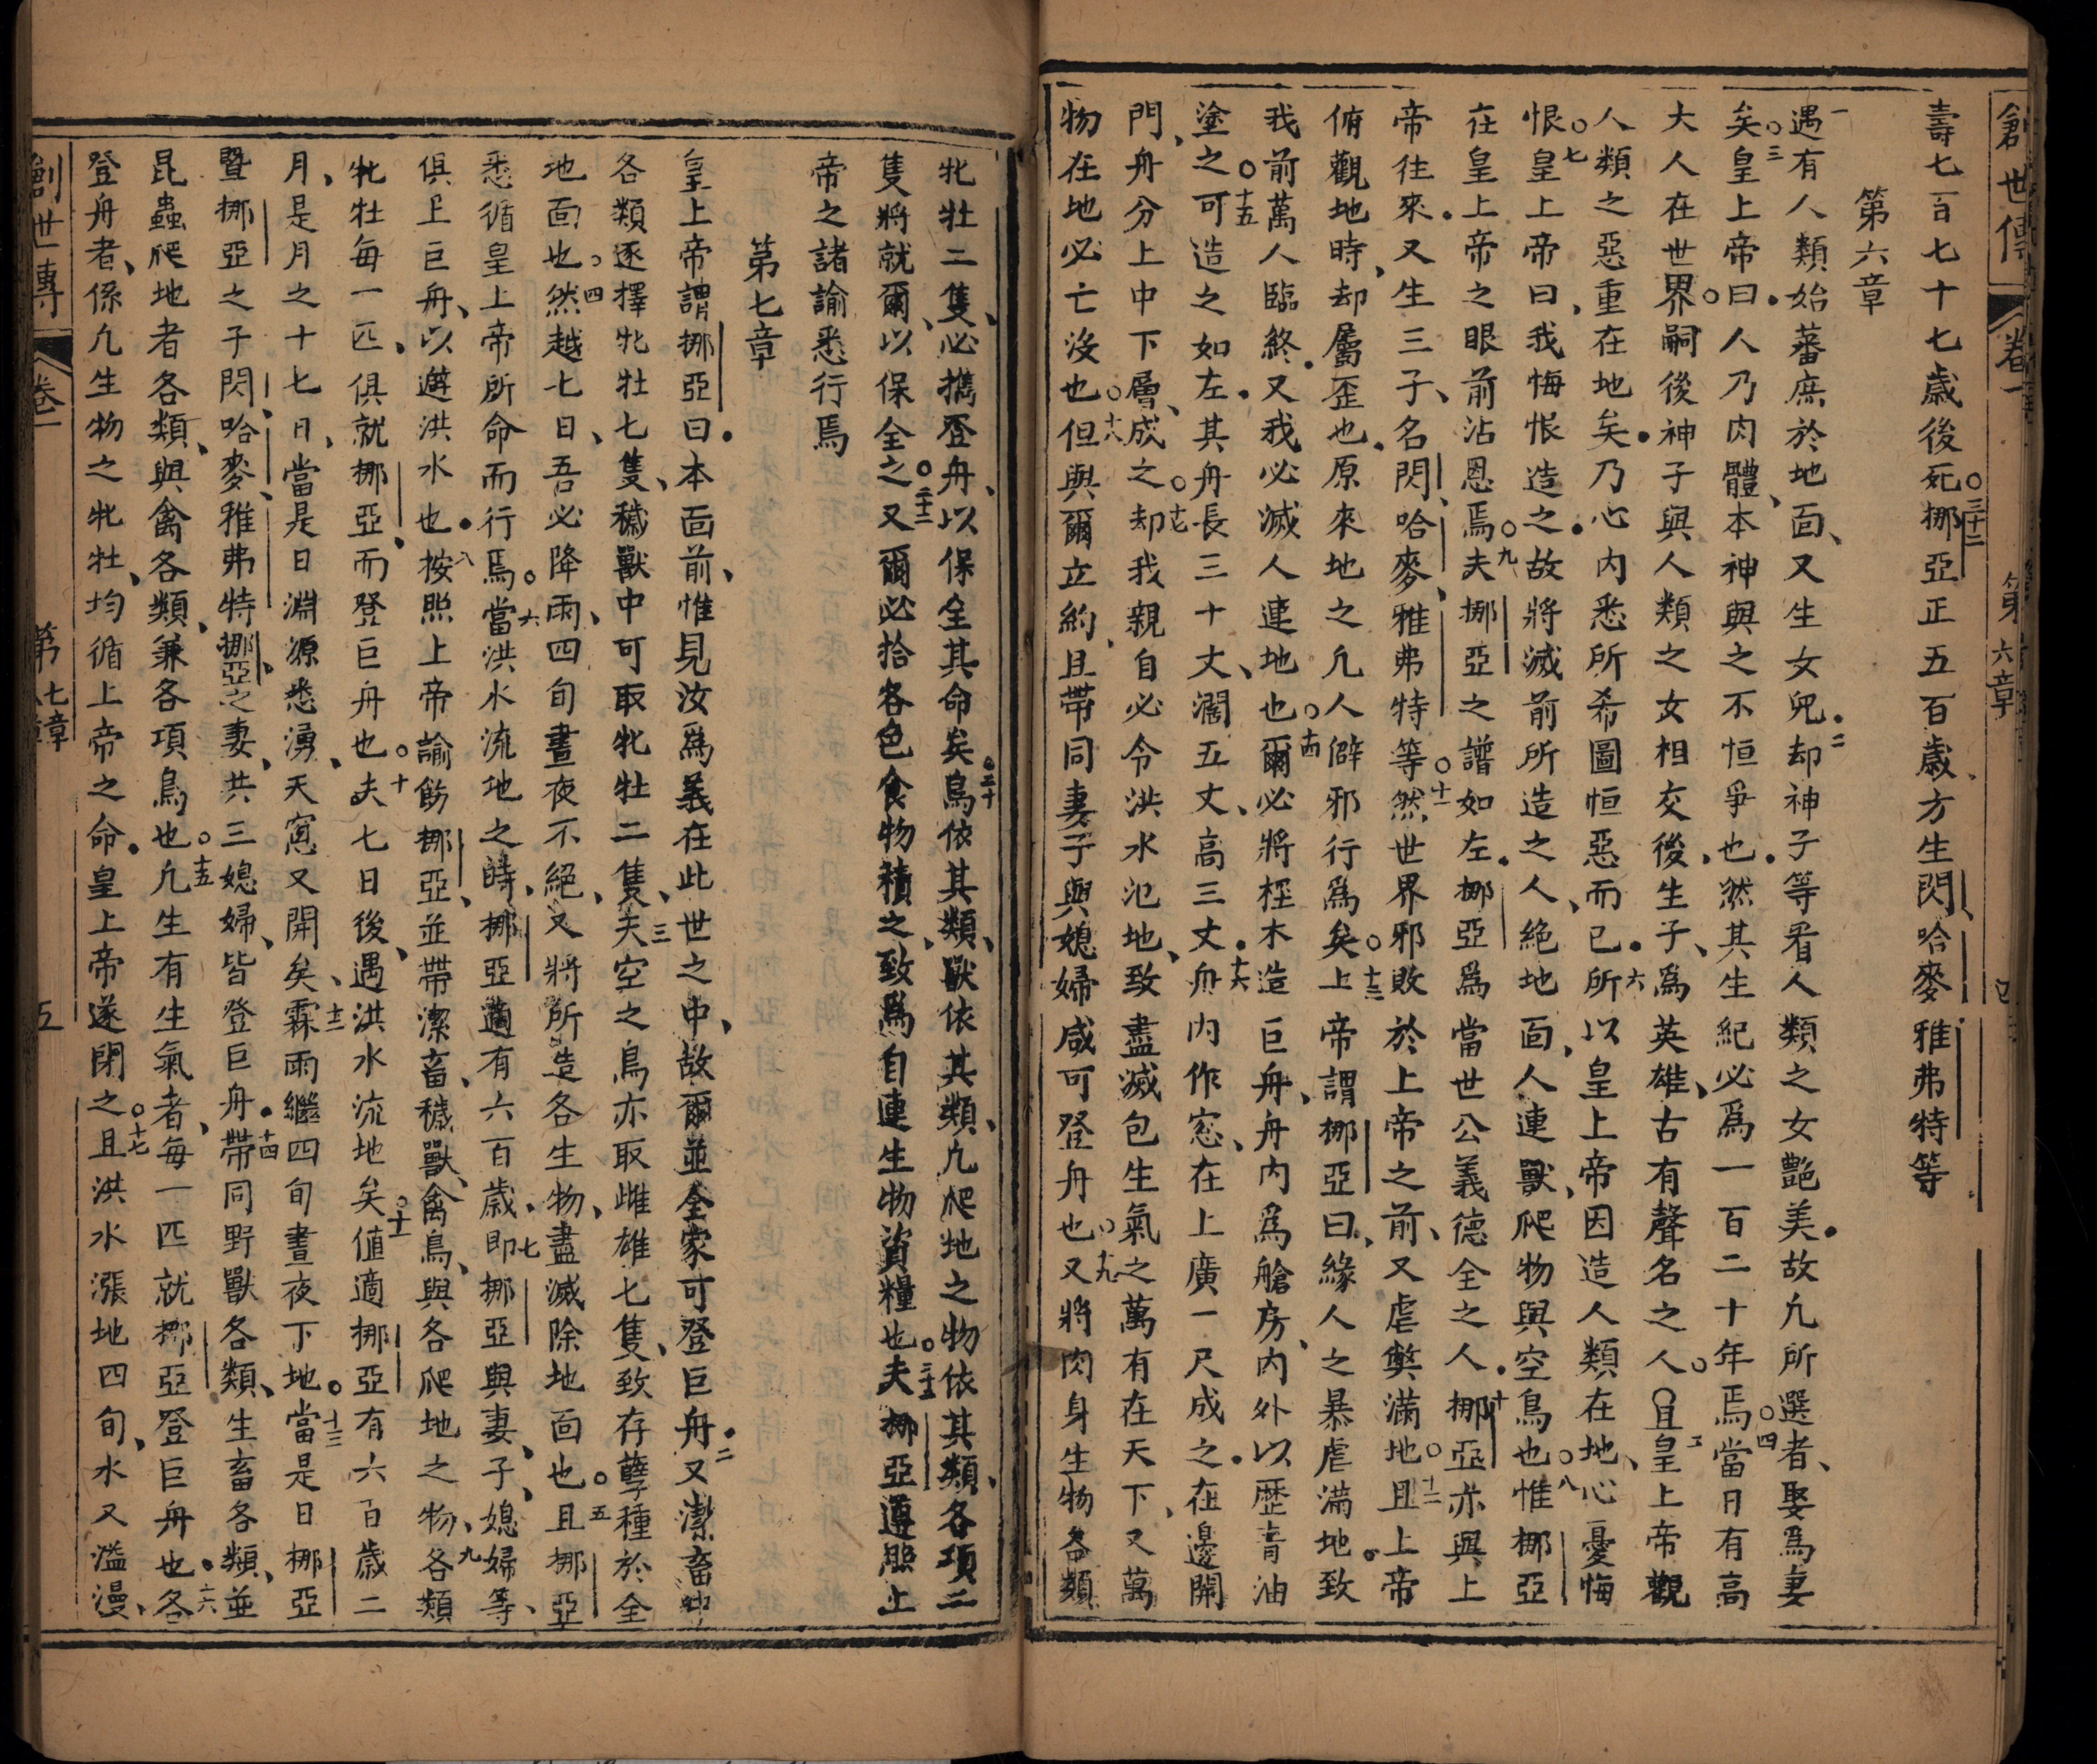 創世傳 卷一 第六章
壽七百七十七歲後死○三十二挪亞正五百歲方生閃哈麥雅弗特等
第六章
一遇有人類始蕃庶於地面、又生女兒.二却神子等看人類之女艷美.故凢所選者、娶爲妻
矣○三皇上帝曰.人乃肉體、本神與之不恒爭也.然其生紀必爲一百二十年焉○四當日有高
大人在世界○嗣後神子與人類之女相交後、生子、爲英雄、古有聲名之人○五且皇上帝觀
人類之惡重在地矣.乃心内悉所希圖恒惡而已.六所以皇上帝因造人類在地、心憂悔
恨○七皇上帝曰、我悔恨造之.故將滅前所造之人、絶地面、人連獸、爬物與空鳥也○八惟挪亞
在皇上帝之眼前沾恩焉○九夫挪亞之譜如左.挪亞爲當世公義德全之人.十挪亞亦與上
帝往來.又生三子、名閃、哈麥、雅弗特等○十一然世界邪敗於上帝之前、又虐獘滿地○十二且上帝
俯觀地時、却屬歪也.原來地之凢人僻邪行爲矣○十三上帝謂挪亞曰、緣人之暴虐滿地.致
我前萬人臨終.又我必滅人連地也○十四爾必將桎木造巨舟、舟内爲艙房、内外以瀝青油
塗之○十五可造之如左.其舟長三十丈、濶五丈、高三丈.十六舟内作窓、在上廣一尺成之.在邊開
門、舟分上中下層、成之○十七却我親自必令洪水氾地、致盡滅包生氣之萬有在天下、又萬
物在地必亡沒也○十八但與爾立約、且帶同妻子與媳婦咸可登舟也○十九又將肉身生物各類
牝牡二隻、必擕登舟、以保全其命矣○二十鳥依其類、獸依其類、凢爬地之物依其類、各項二
隻將就爾、以保全之○二十一又爾必拾各色食物積之、致爲自連生物資糧也○二十二夫挪亞遵照上
帝之諸諭悉行焉
第七章
皇上帝謂挪亞曰.本面前、惟見汝爲義在此世之中、故爾並全家可登巨舟.二又潔畜中
各類逐擇牝牡七隻、穢獸中可取牝牡二隻、三夫空之鳥亦取雌雄七隻、致存孽種於全
地面也○四然越七日、吾必降雨、四旬晝夜不絕、又將所造各生物、盡滅除地面也○五且挪亞
悉循皇上帝所命而行焉○六當洪水流地之時、挪亞適有六百歲、七即挪亞與妻、子、媳婦等、
俱上巨舟、以避洪水也.八按照上帝諭飭挪亞、並帶潔畜、穢獸、禽鳥、與各爬地之物、九各類
牝牡每一匹、俱就挪亞、而登巨舟也○十夫七日後、遇洪水流地矣○十一値適挪亞有六百歲二
月、是月之十七日、當是日淵源悉湧、天窓又開矣、十二霖雨繼四旬晝夜下地○十三當是日挪亞
暨挪亞之子閃、哈麥、雅弗特、挪亞之妻、共三媳婦、皆登巨舟.十四帶同野獸各類、生畜各類、並
昆蟲爬地者各類、與禽各類、兼各項鳥也○十五凢生有生氣者、每一匹就挪亞登巨舟也.十六各
登舟者、係凢生物之牝牡、均循上帝之命.皇上帝遂閉之○十七且洪水漲地四旬、水又溢漫、
創世傳 卷一 第七章 五